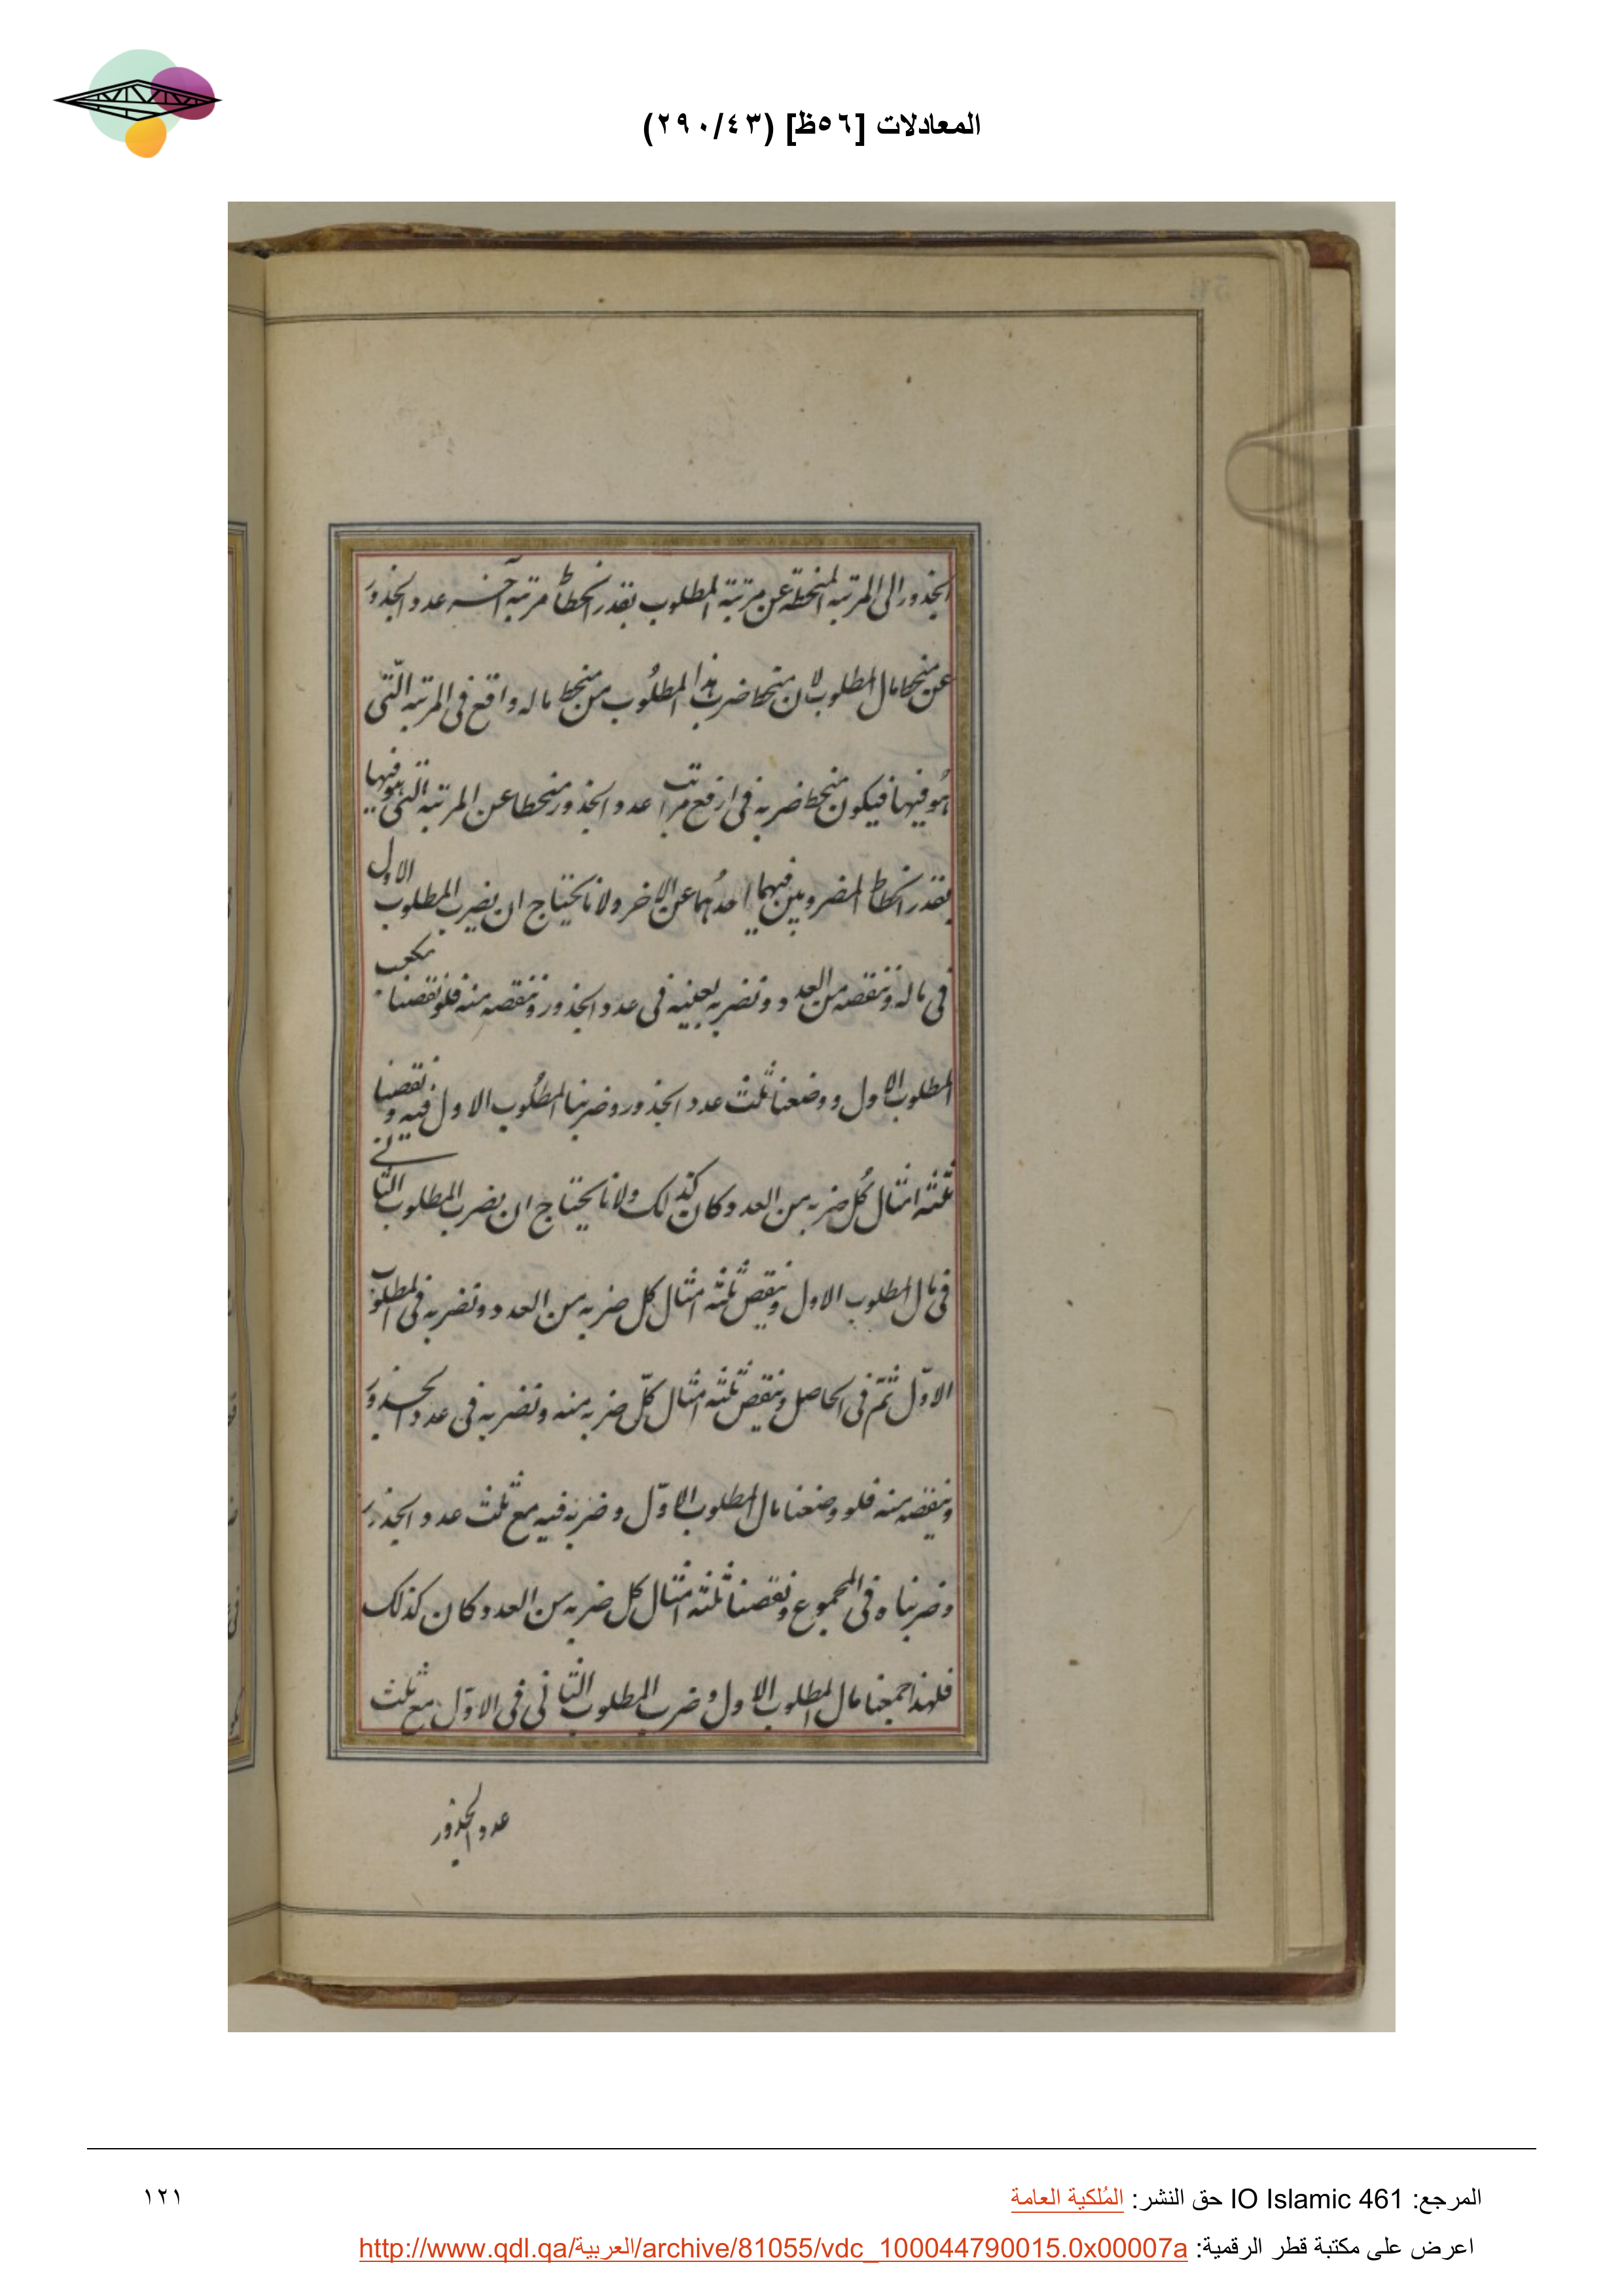 المعادلات [٥٦ظ] (٢٩٠/٤٣)
الجذور الى المرتبه المنحطة عن مرتبة المطلوب بقدر انحطاط مرتبه آخر عدد الجذور
عن منحط مال المطلوب لان منحط ضرب هذا المطلُوب من منحط ماله واقع فى المرتبه الّتى
هُو فيها فيكون منحط ضربه فى ارفع مراتب عدد الجذور منحطا عن المرتبه التى هو فيها
بقدر انحطاط المضروبين فيهما احدهُما عن الاخر ولانا نحتاج ان نضرب المطلوب الاول
فى ماله وننقصه من العدد ونضربه بعينه فى عدد الجذور وننقصه منه فلو نقصنا مكعب
المطلوب الاول ووضعنا ثلث عدد الجذور وضربنا المطلُوب الاول فيه ونقصنا
ثلثة امثال كُل ضربه من العدد كان كذلك ولانا نحتاج ان نضرب المطلوب الثانى
فى مال المطلوب الاول وننقص ثلثه امثال كل ضربه من العدد ونضربه فى المطلوب
الاوّل ثمّ فى الحاصل وننقص ثلثه امثال كلّ ضربه منه ونضربه فى عدد الجذور
وننقصه منه فلو وضعنا مال المطلوب الاوّل وضربه فيه مع ثلث عدد الجذور
وضربناه فى المجموع ونقصنا ثلثه امثال كل ضربه من العدد كان كذلك
فلهذا جمعنا مال المطلوب الاول وضرب المطلوب الثانى فى الاوّل مع ثلث
عدد الجذور
المرجع: IO Islamic 461 حق النشر: المُلكية العامة
١٢١
اعرض على مكتبة قطر الرقمية: http://www.qdl.qa/العربية/archive/81055/vdc_100044790015.0x00007a